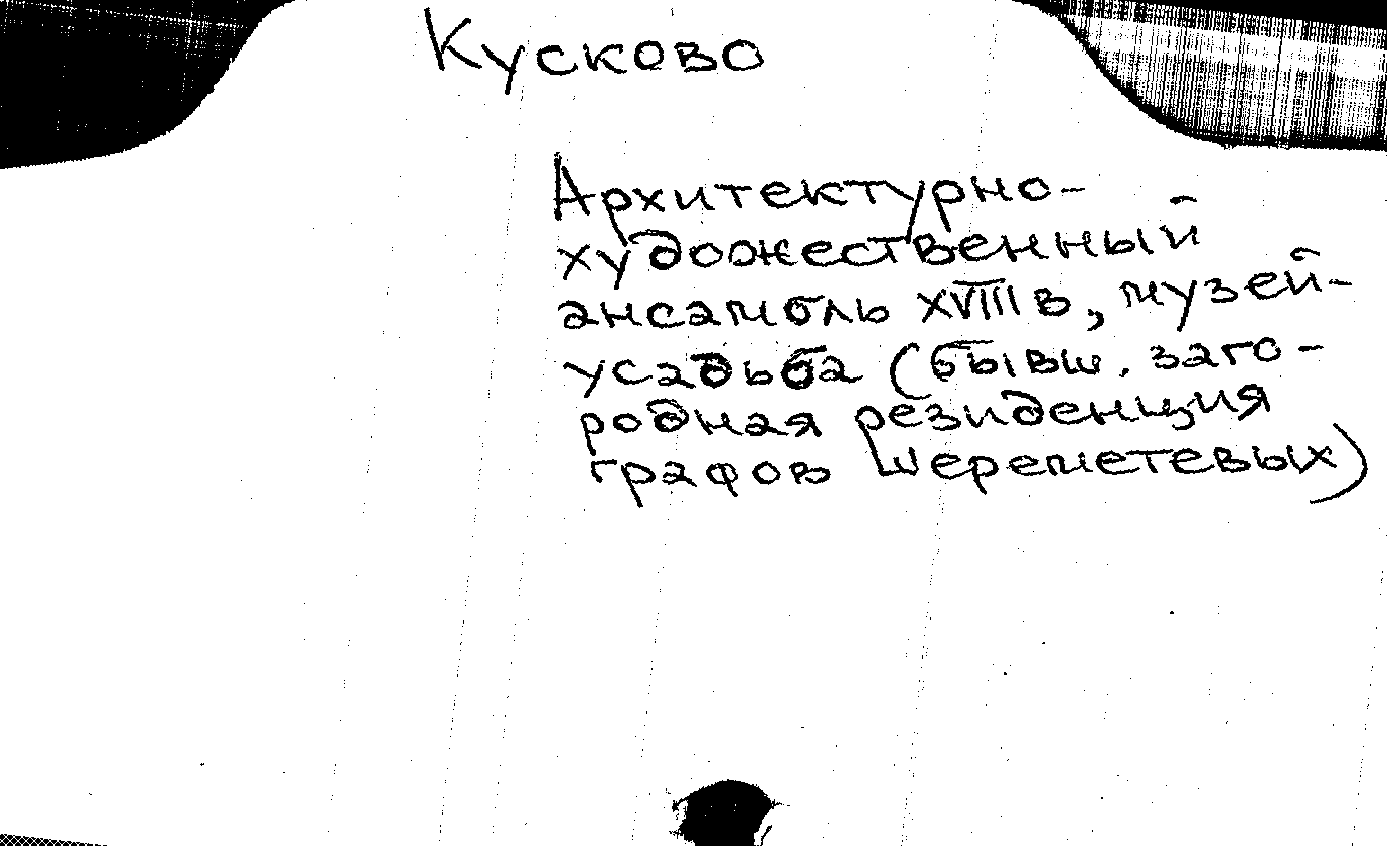 Кусково
Архитектурно-
художественный
ансамбль XVIII в, музей-
усадьба (бывш. заго-
родная резиденция
графов Шереметевых)